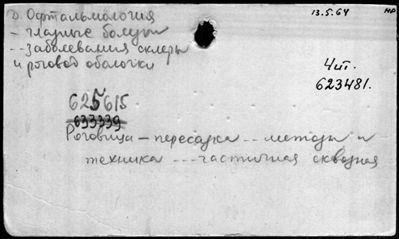 Офтальмология
13.5.64
НР
- глазные болезни
-- заболевания склеры
и роговой оболочки
Чит.
623481.
625615
633339
Роговица - пересадка -- методы и
техника --- частичная сквозная